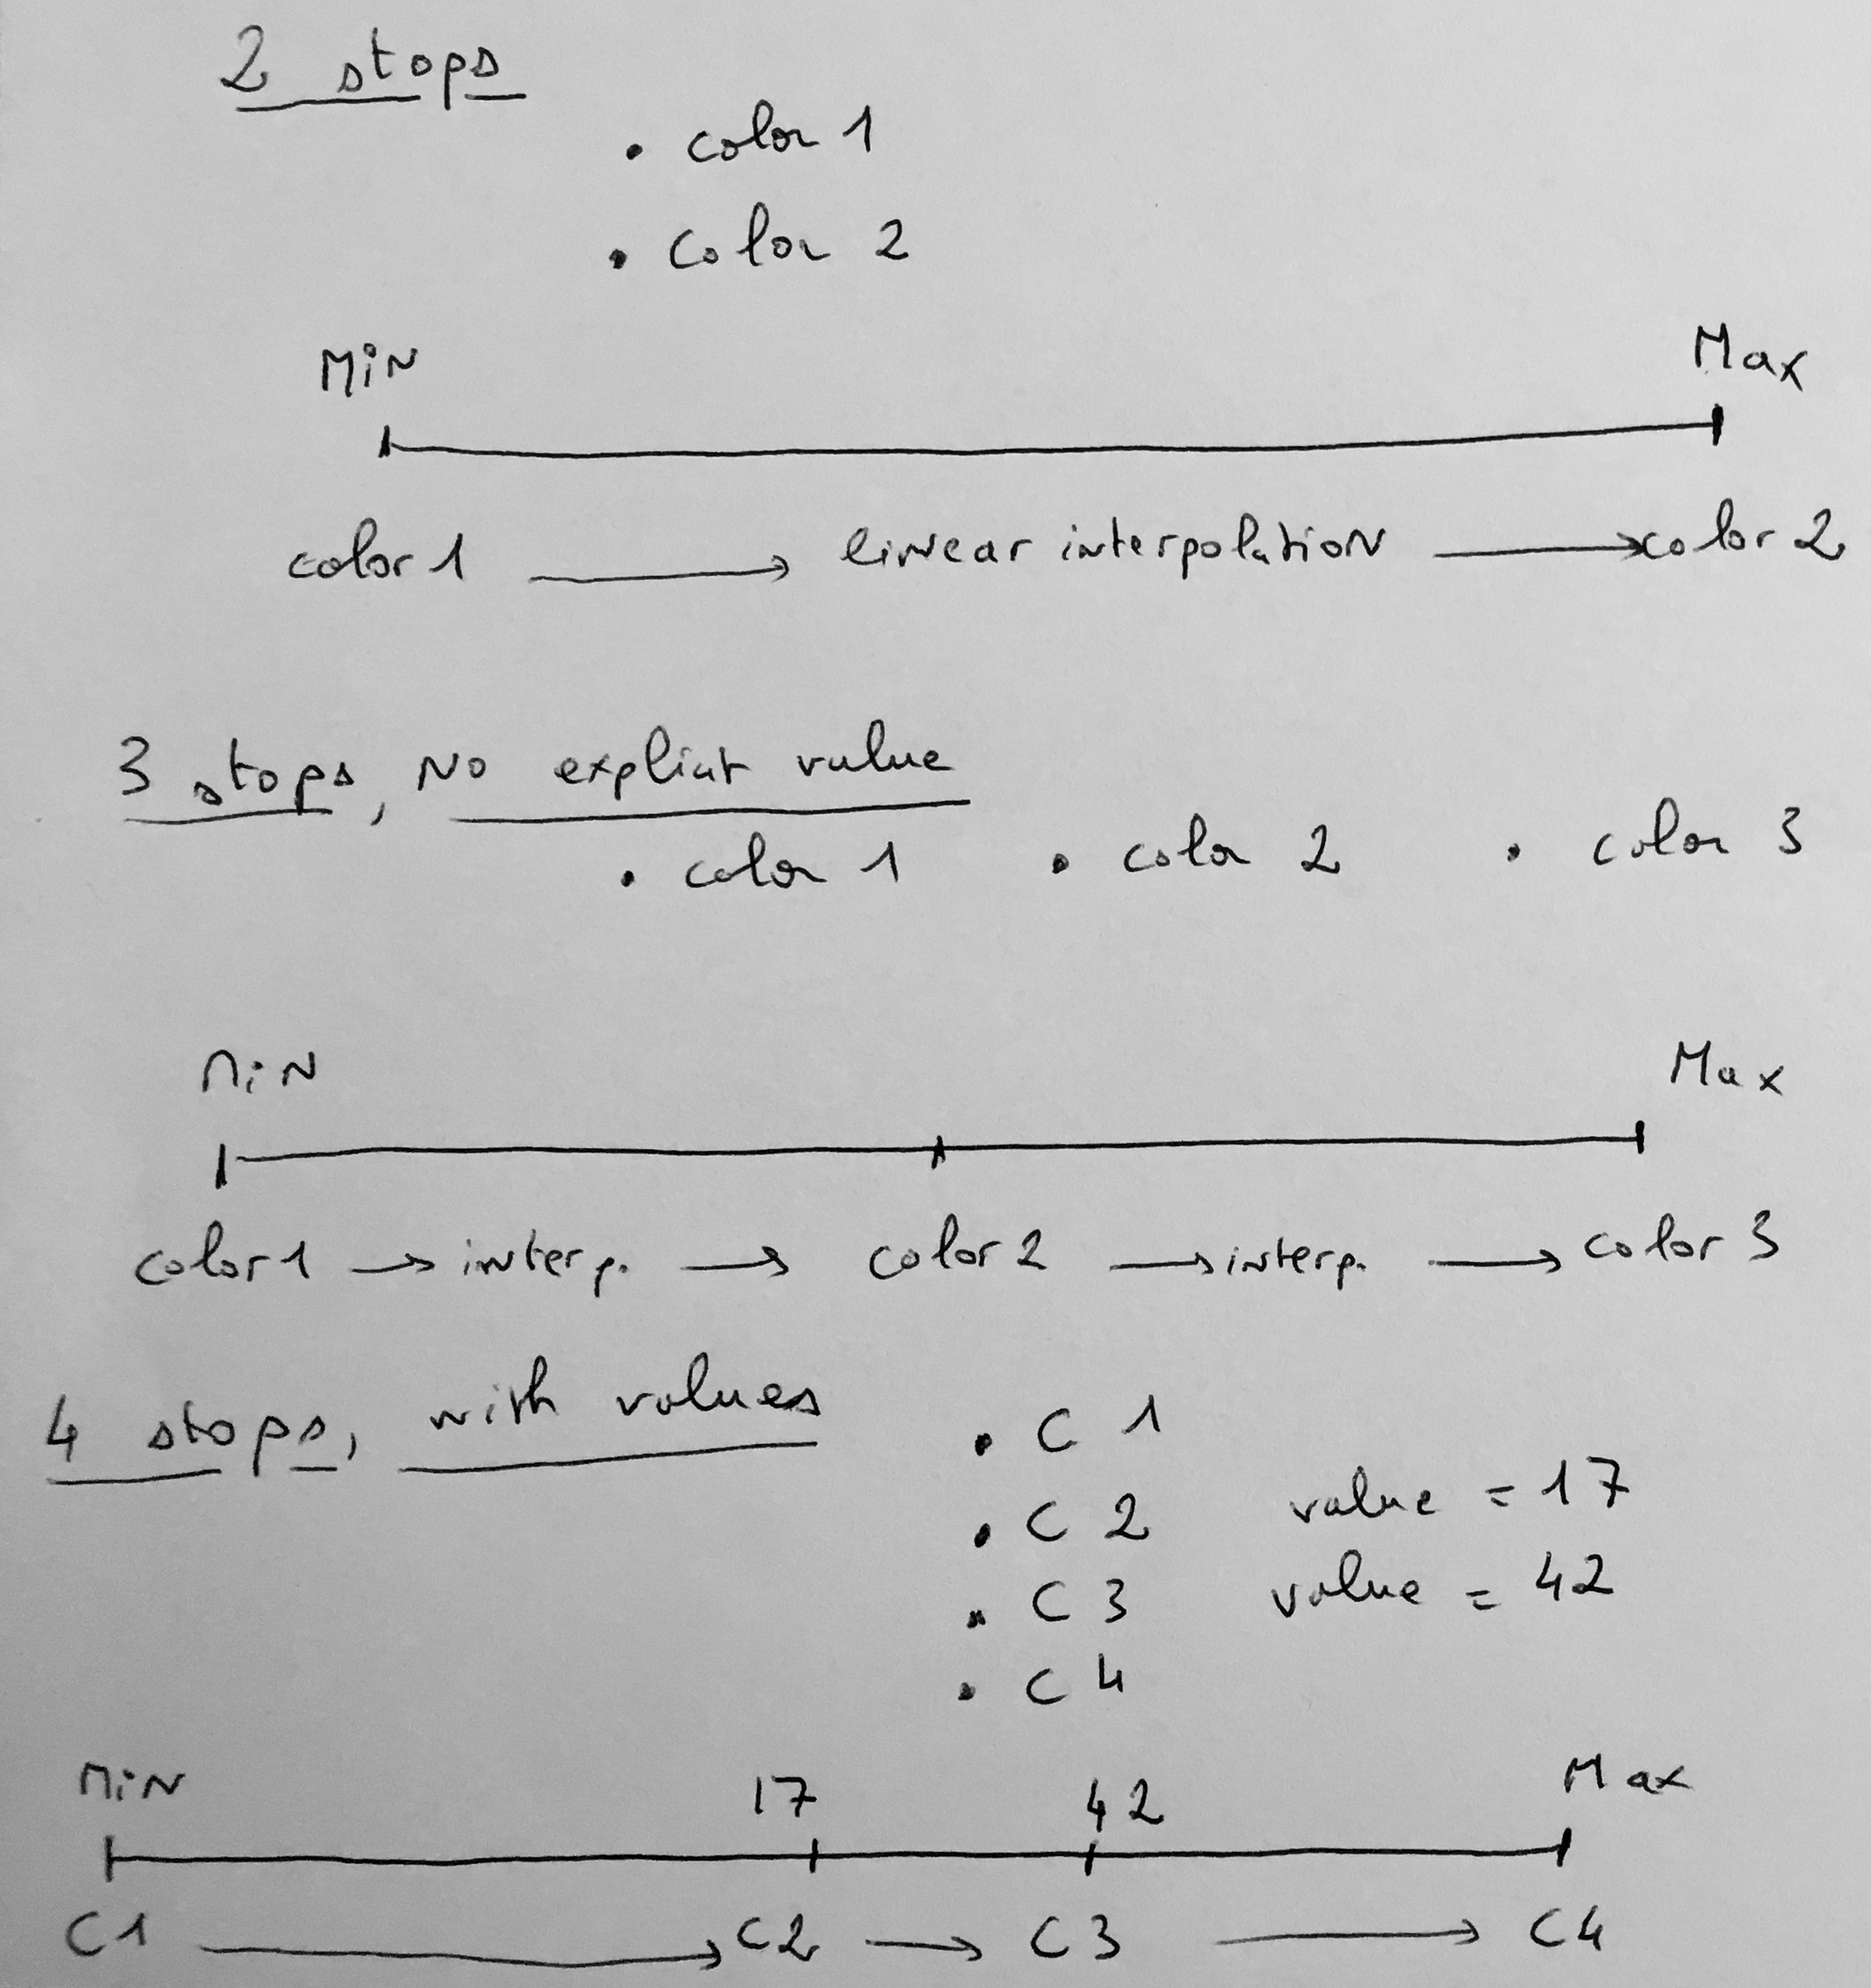 2 stops
• color 1
• color 2
Min Max
color 1 → linear interpolation → color 2
3 stops, No explicit value
• color 1 • color 2 • color 3
Min Max
color 1 → interp. → color 2 → interp. → color 3
4 stops, with values
• C 1
• C 2 value = 17
• C 3 value = 42
• C 4
Min 17 42 Max
C1 → C2 → C3 → C4